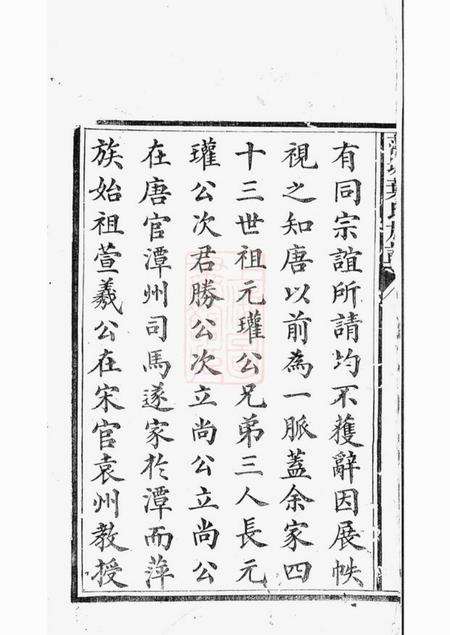 有同宗誼所請均不獲辭因展帙
視之知唐以前為一脈蓋余家四
十三世祖元瓘公兄弟三人長元
瓘公次君勝公次立尚公立尚公
在唐官潭州司馬遂家於潭而萍
族始祖萱羲公在宋官袁州教授